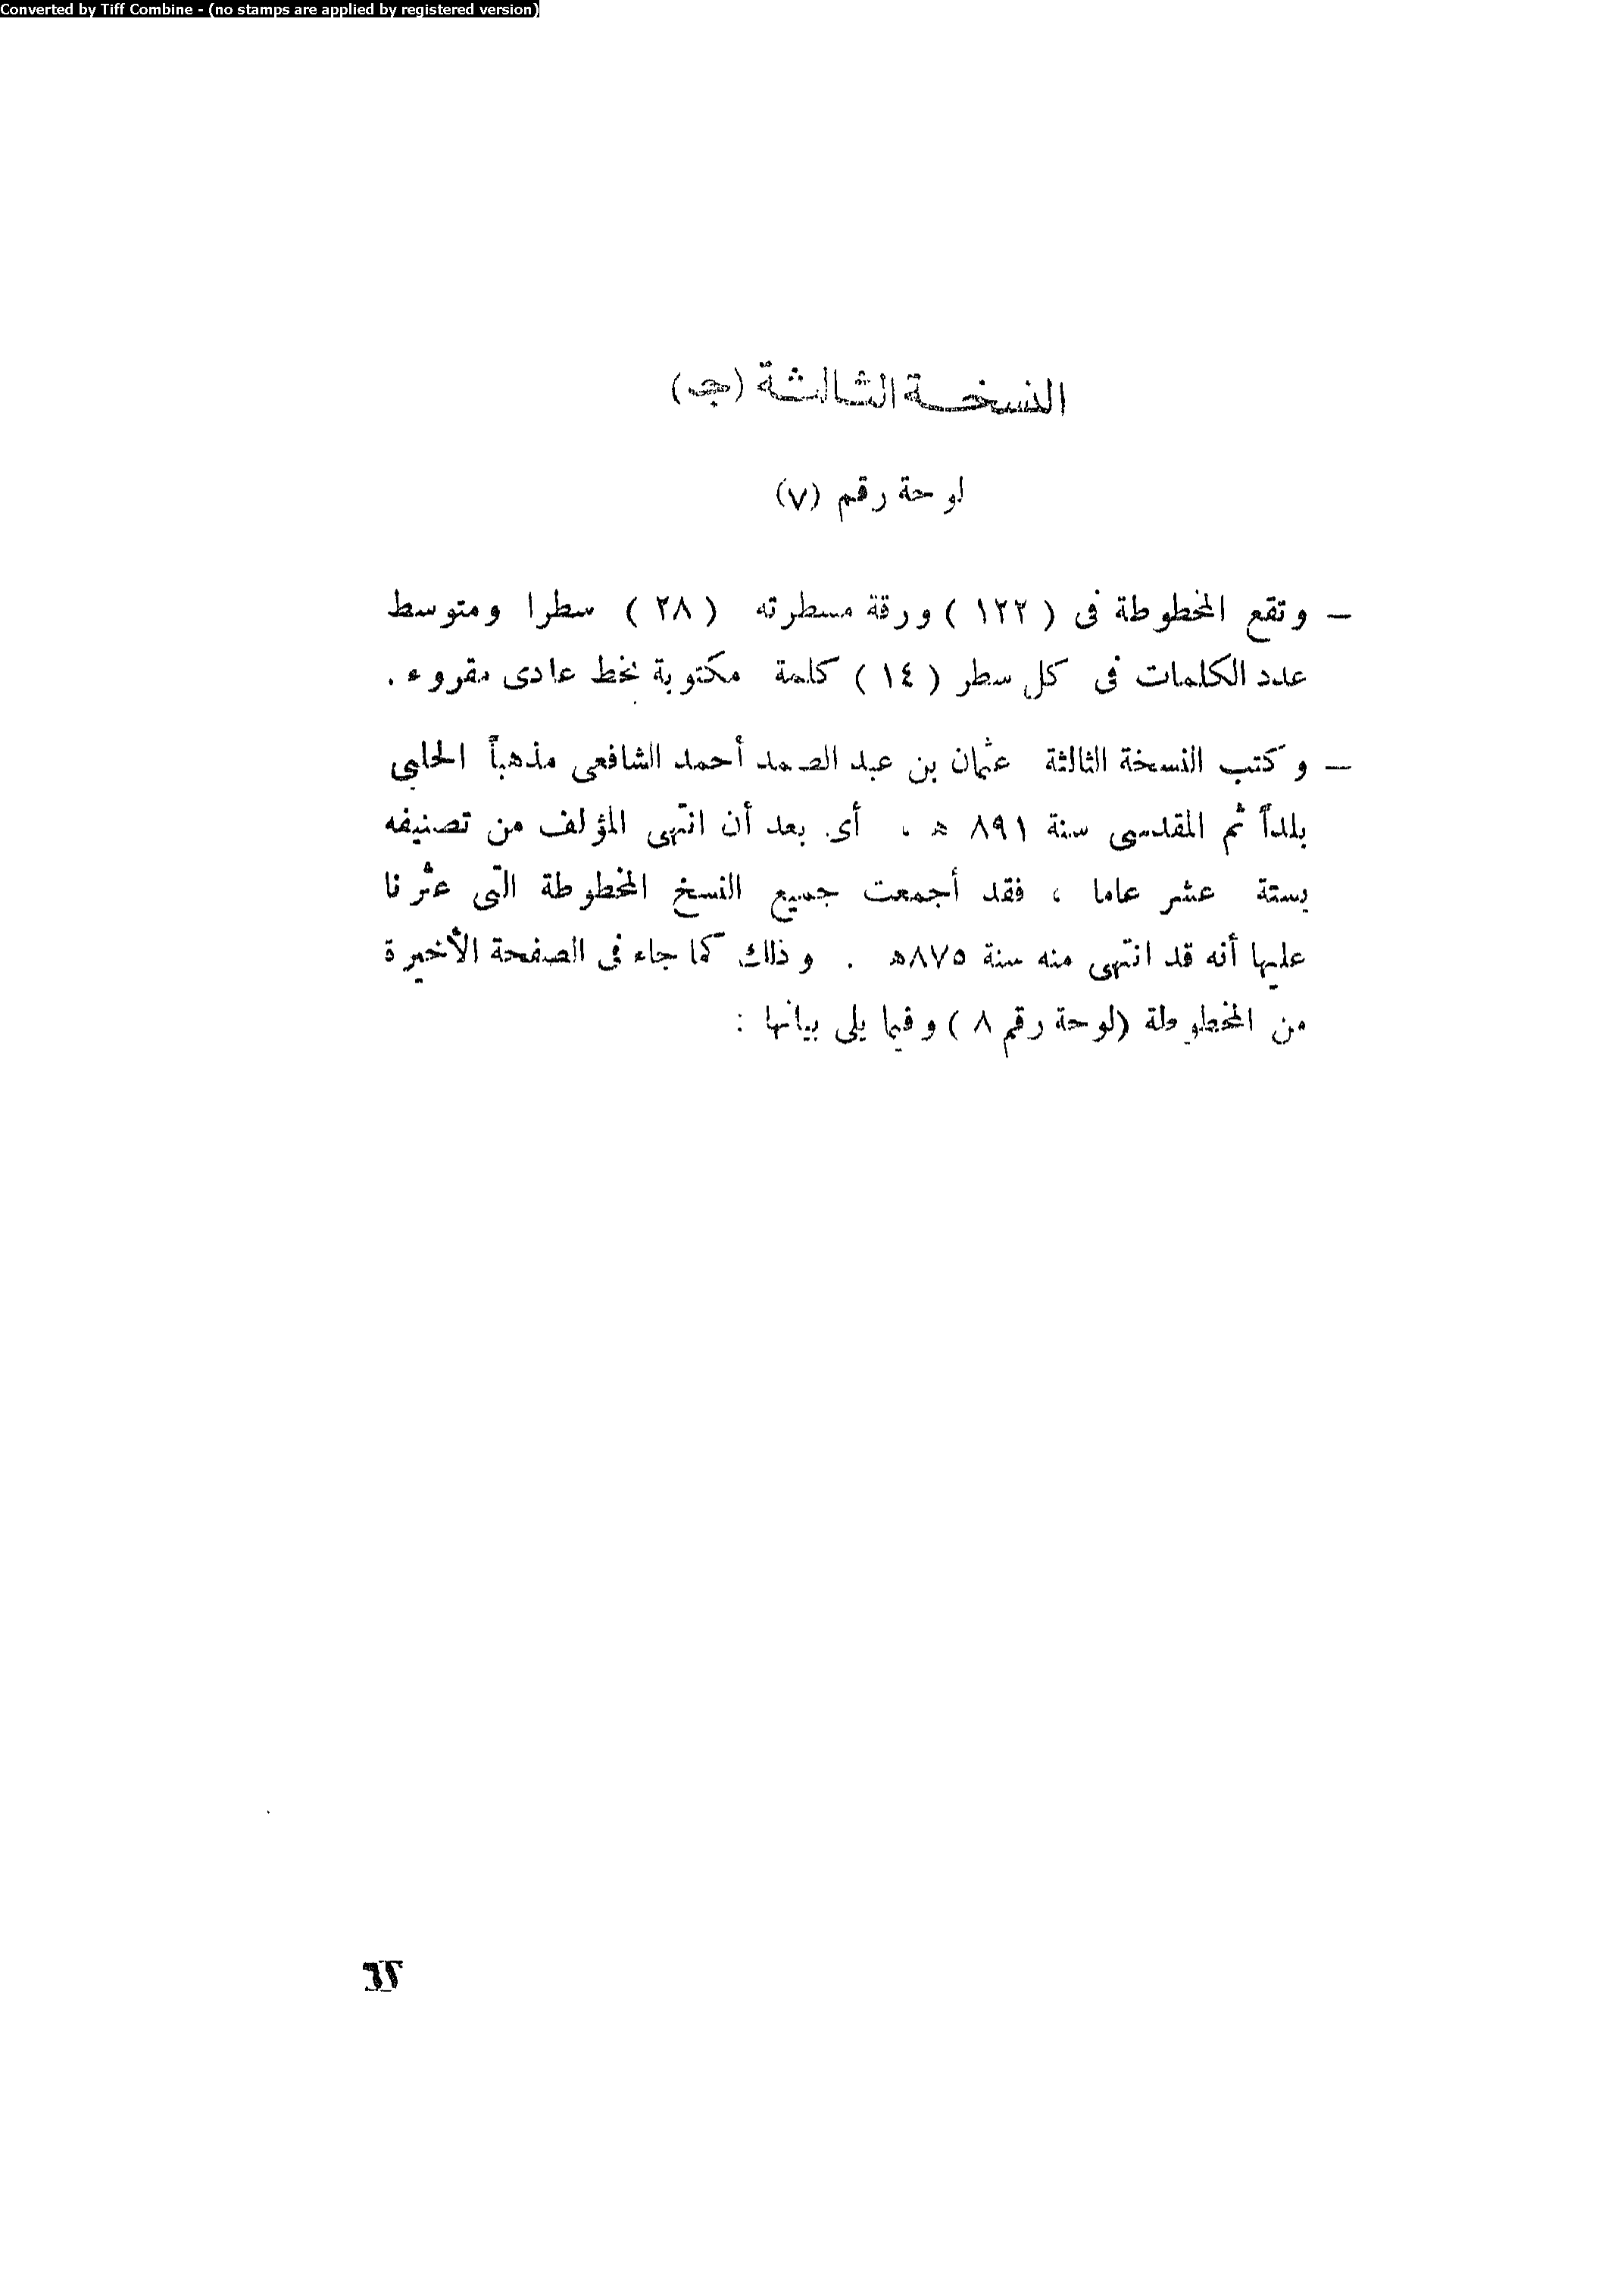 Converted by Tiff Combine - (no stamps are applied by registered version)
النسخة الثالثة (جـ)
لوحة رقم (٧)
– وتقع المخطوطة فى ( ١٢٢ ) ورقة مسطرته ( ٢٨ ) سطرا ومتوسط
عدد الكلمات فى كل سطر ( ١٤ ) كلمة مكتوبة بخط عادى مقروء .
– وكتب النسخة الثالثة عثمان بن عبد الصمد أحمد الشافعى مذهباً الحلبى
بلداً ثم المقدسى سنة ٨٩١ هـ ، أى بعد أن انتهى المؤلف من تصنيفه
بستة عشر عاما ، فقد أجمعت جميع النسخ المخطوطة التى عثرنا
عليها أنه قد انتهى منه سنة ٨٧٥هـ . وذلك كما جاء فى الصفحة الأخيرة
من المخطوطة (لوحة رقم ٨ ) وفيما يلى بيانها :